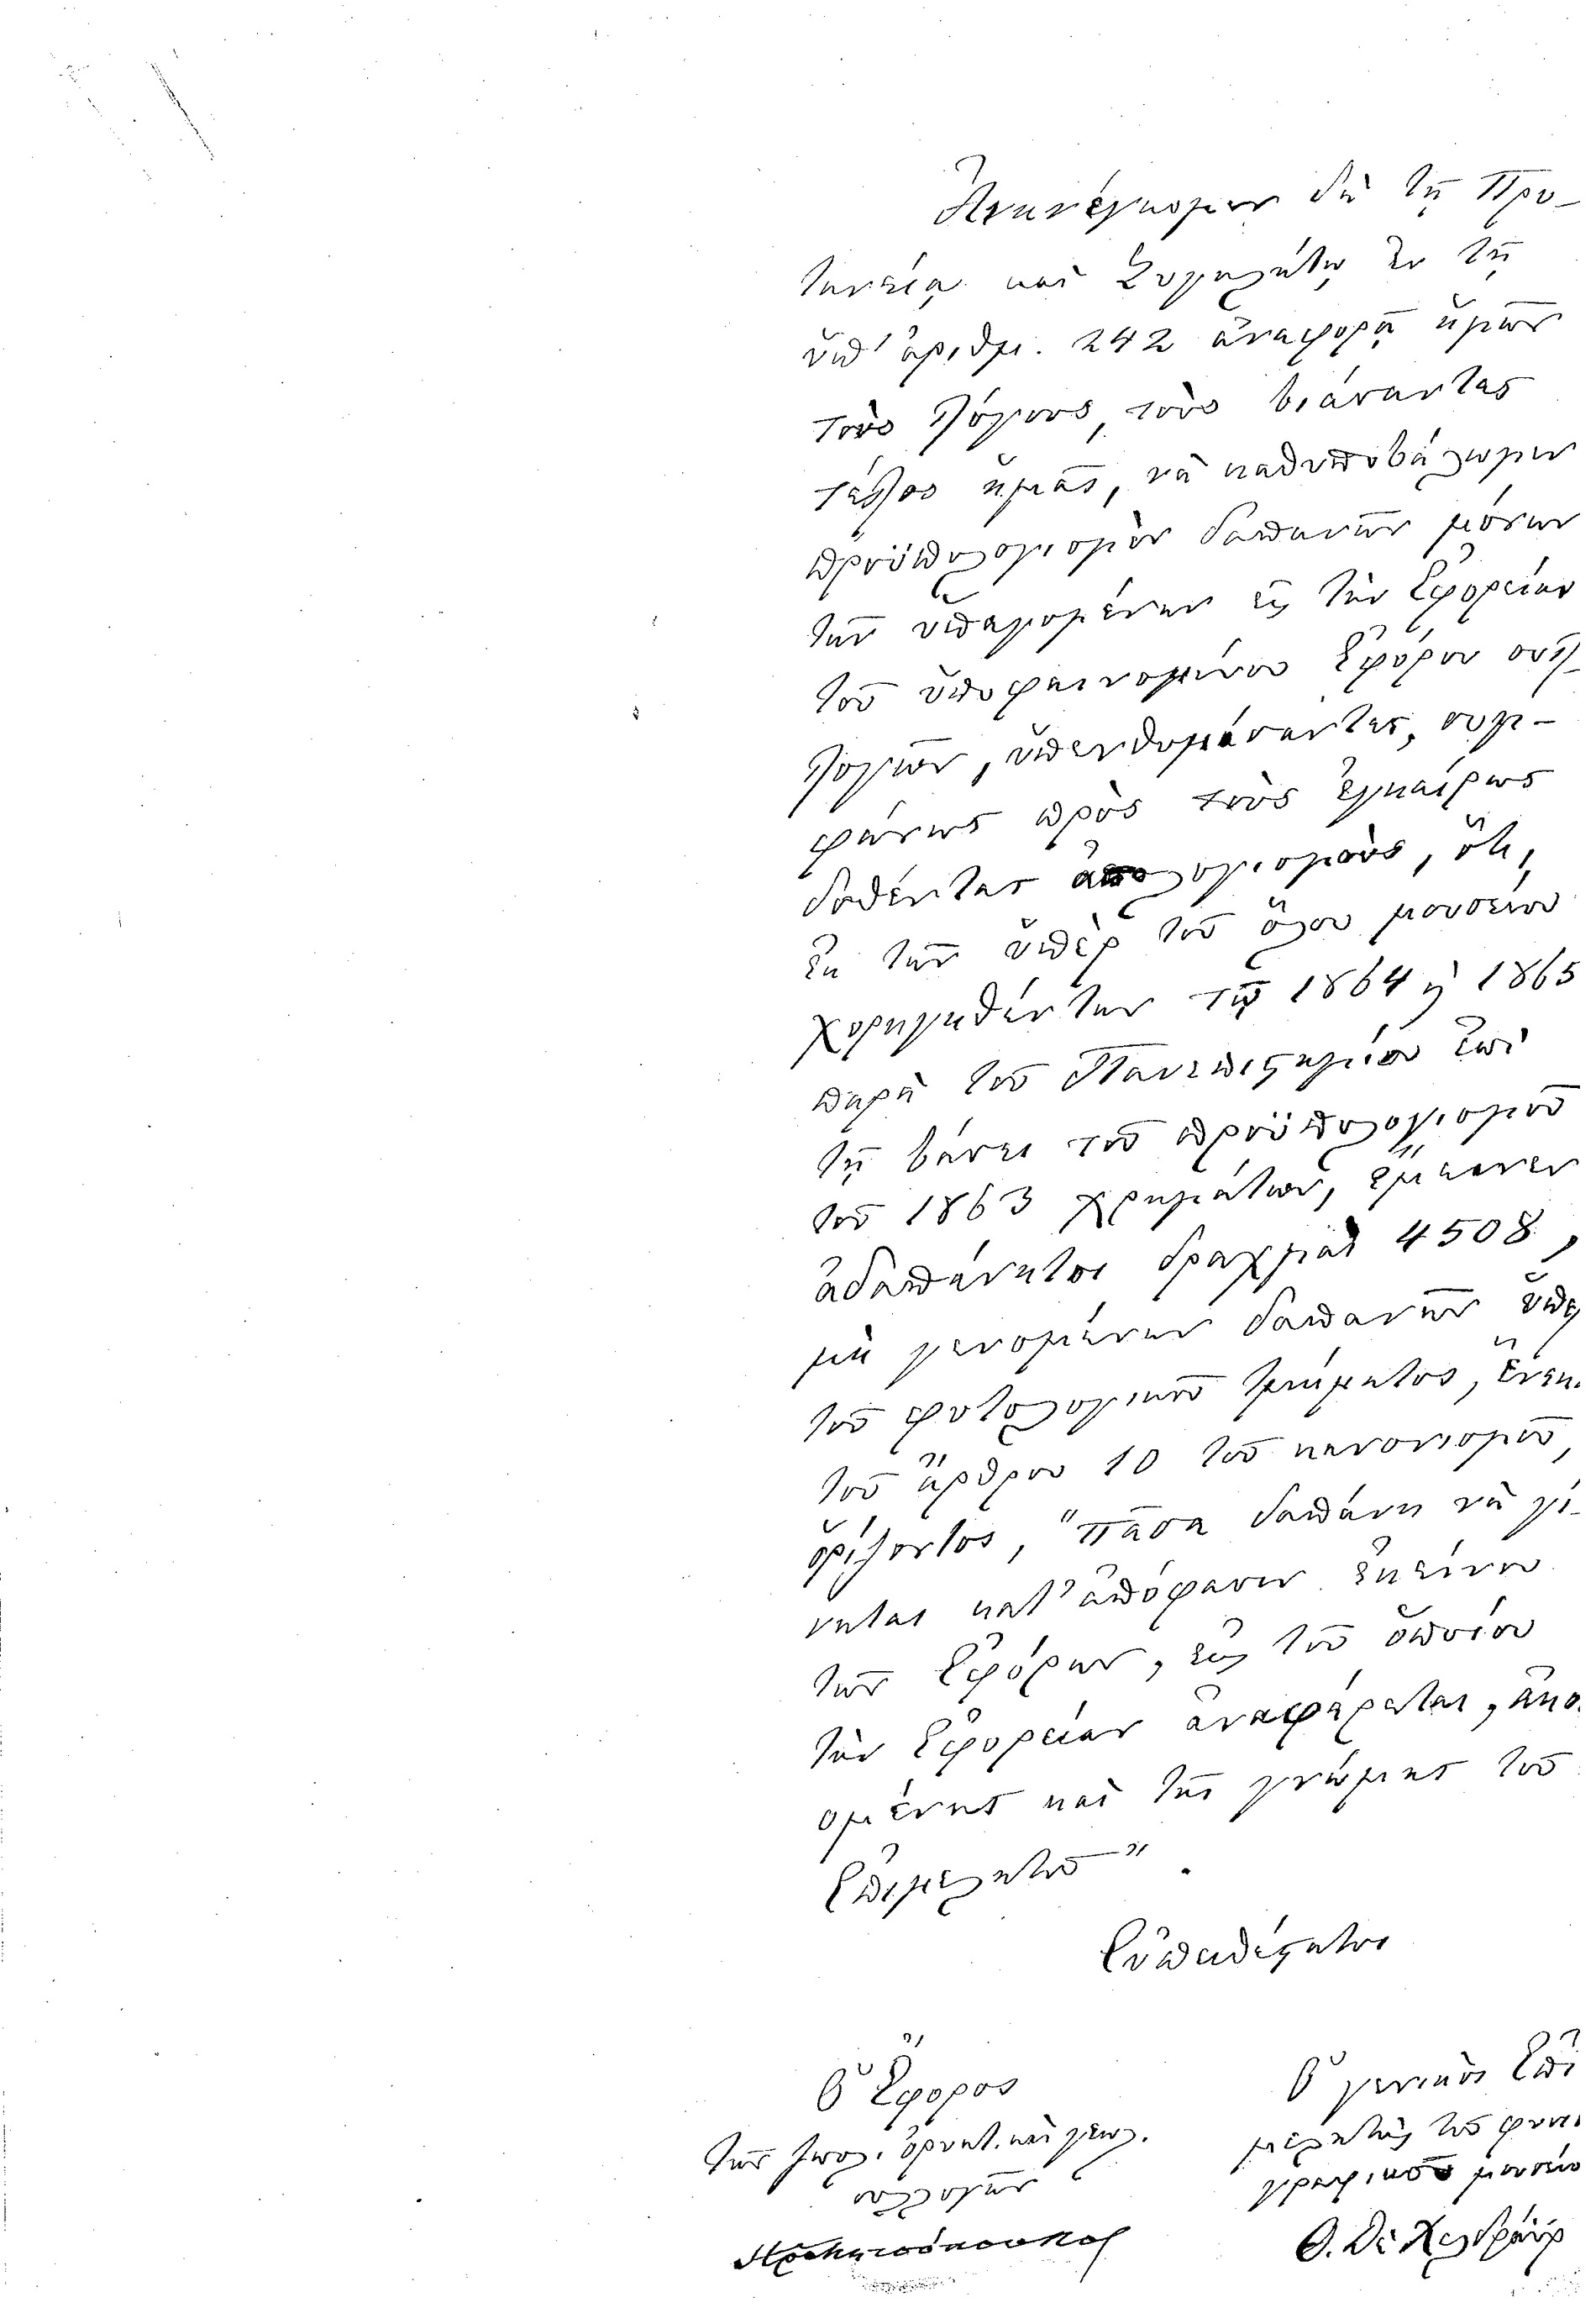 Ἀνηνέγκομεν δὲ τῇ Πρυ-
τανείᾳ καὶ Συγκλήτῳ ἐν τῇ
ὑπ' ἀριθμ. 242 ἀναφορᾷ ἡμῶν
τοὺς λόγους, τοὺς βιάσαντας
τέλος ἡμᾶς, νὰ καθυποβάλωμεν
προϋπολογισμὸν δαπανῶν μόνων
τῶν ὑπαγομένων εἰς τὴν Ἐφορείαν
τοῦ ὑποφαινομένου Ἐφόρου συλ-
λογῶν, ὑπενθυμίσαντες, συμ-
φώνως πρὸς τοὺς ἐγκαίρως
δοθέντας ἀπολογισμοὺς, ὅτι,
ἐκ τῶν ὑπὲρ τοῦ ὅλου μουσείου
χορηγηθέντων τῷ 1864 ᾗ 1865
παρὰ τοῦ Πανεπιστημίου ἐπὶ
τῇ βάσει τοῦ προϋπολογισμοῦ
τοῦ 1863 χρημάτων, ἔμεινον
ἀδαπάνητοι δραχμαὶ 4508,
μὴ γενομένων δαπανῶν ὑπὲρ
τοῦ φυτολογικοῦ τμήματος, ἕνεκα
τοῦ ἄρθρου 10 τοῦ κανονισμοῦ,
ὁρίζοντος, "πᾶσα δαπάνη νὰ γί-
νηται κατ' ἀπόφασιν ἐκείνου
τῶν Ἐφόρων, εἰς τοῦ ὁποίου
τὴν Ἐφορείαν ἀναφέρεται, ἀκου-
ομένης καὶ τῆς γνώμης τοῦ
Ἐπιμελητοῦ".
Εὐπειθέστατοι
Ὁ Ἔφορος
τῶν ζωολ. ὀρυκτ. καὶ γεωλ.
συλλογῶν
Ὁ γενικὸς Ἐπι
μελητὴς τοῦ φυσιο
γραφικοῦ μουσείου
Θ. Δὲ Χελδράϊχ